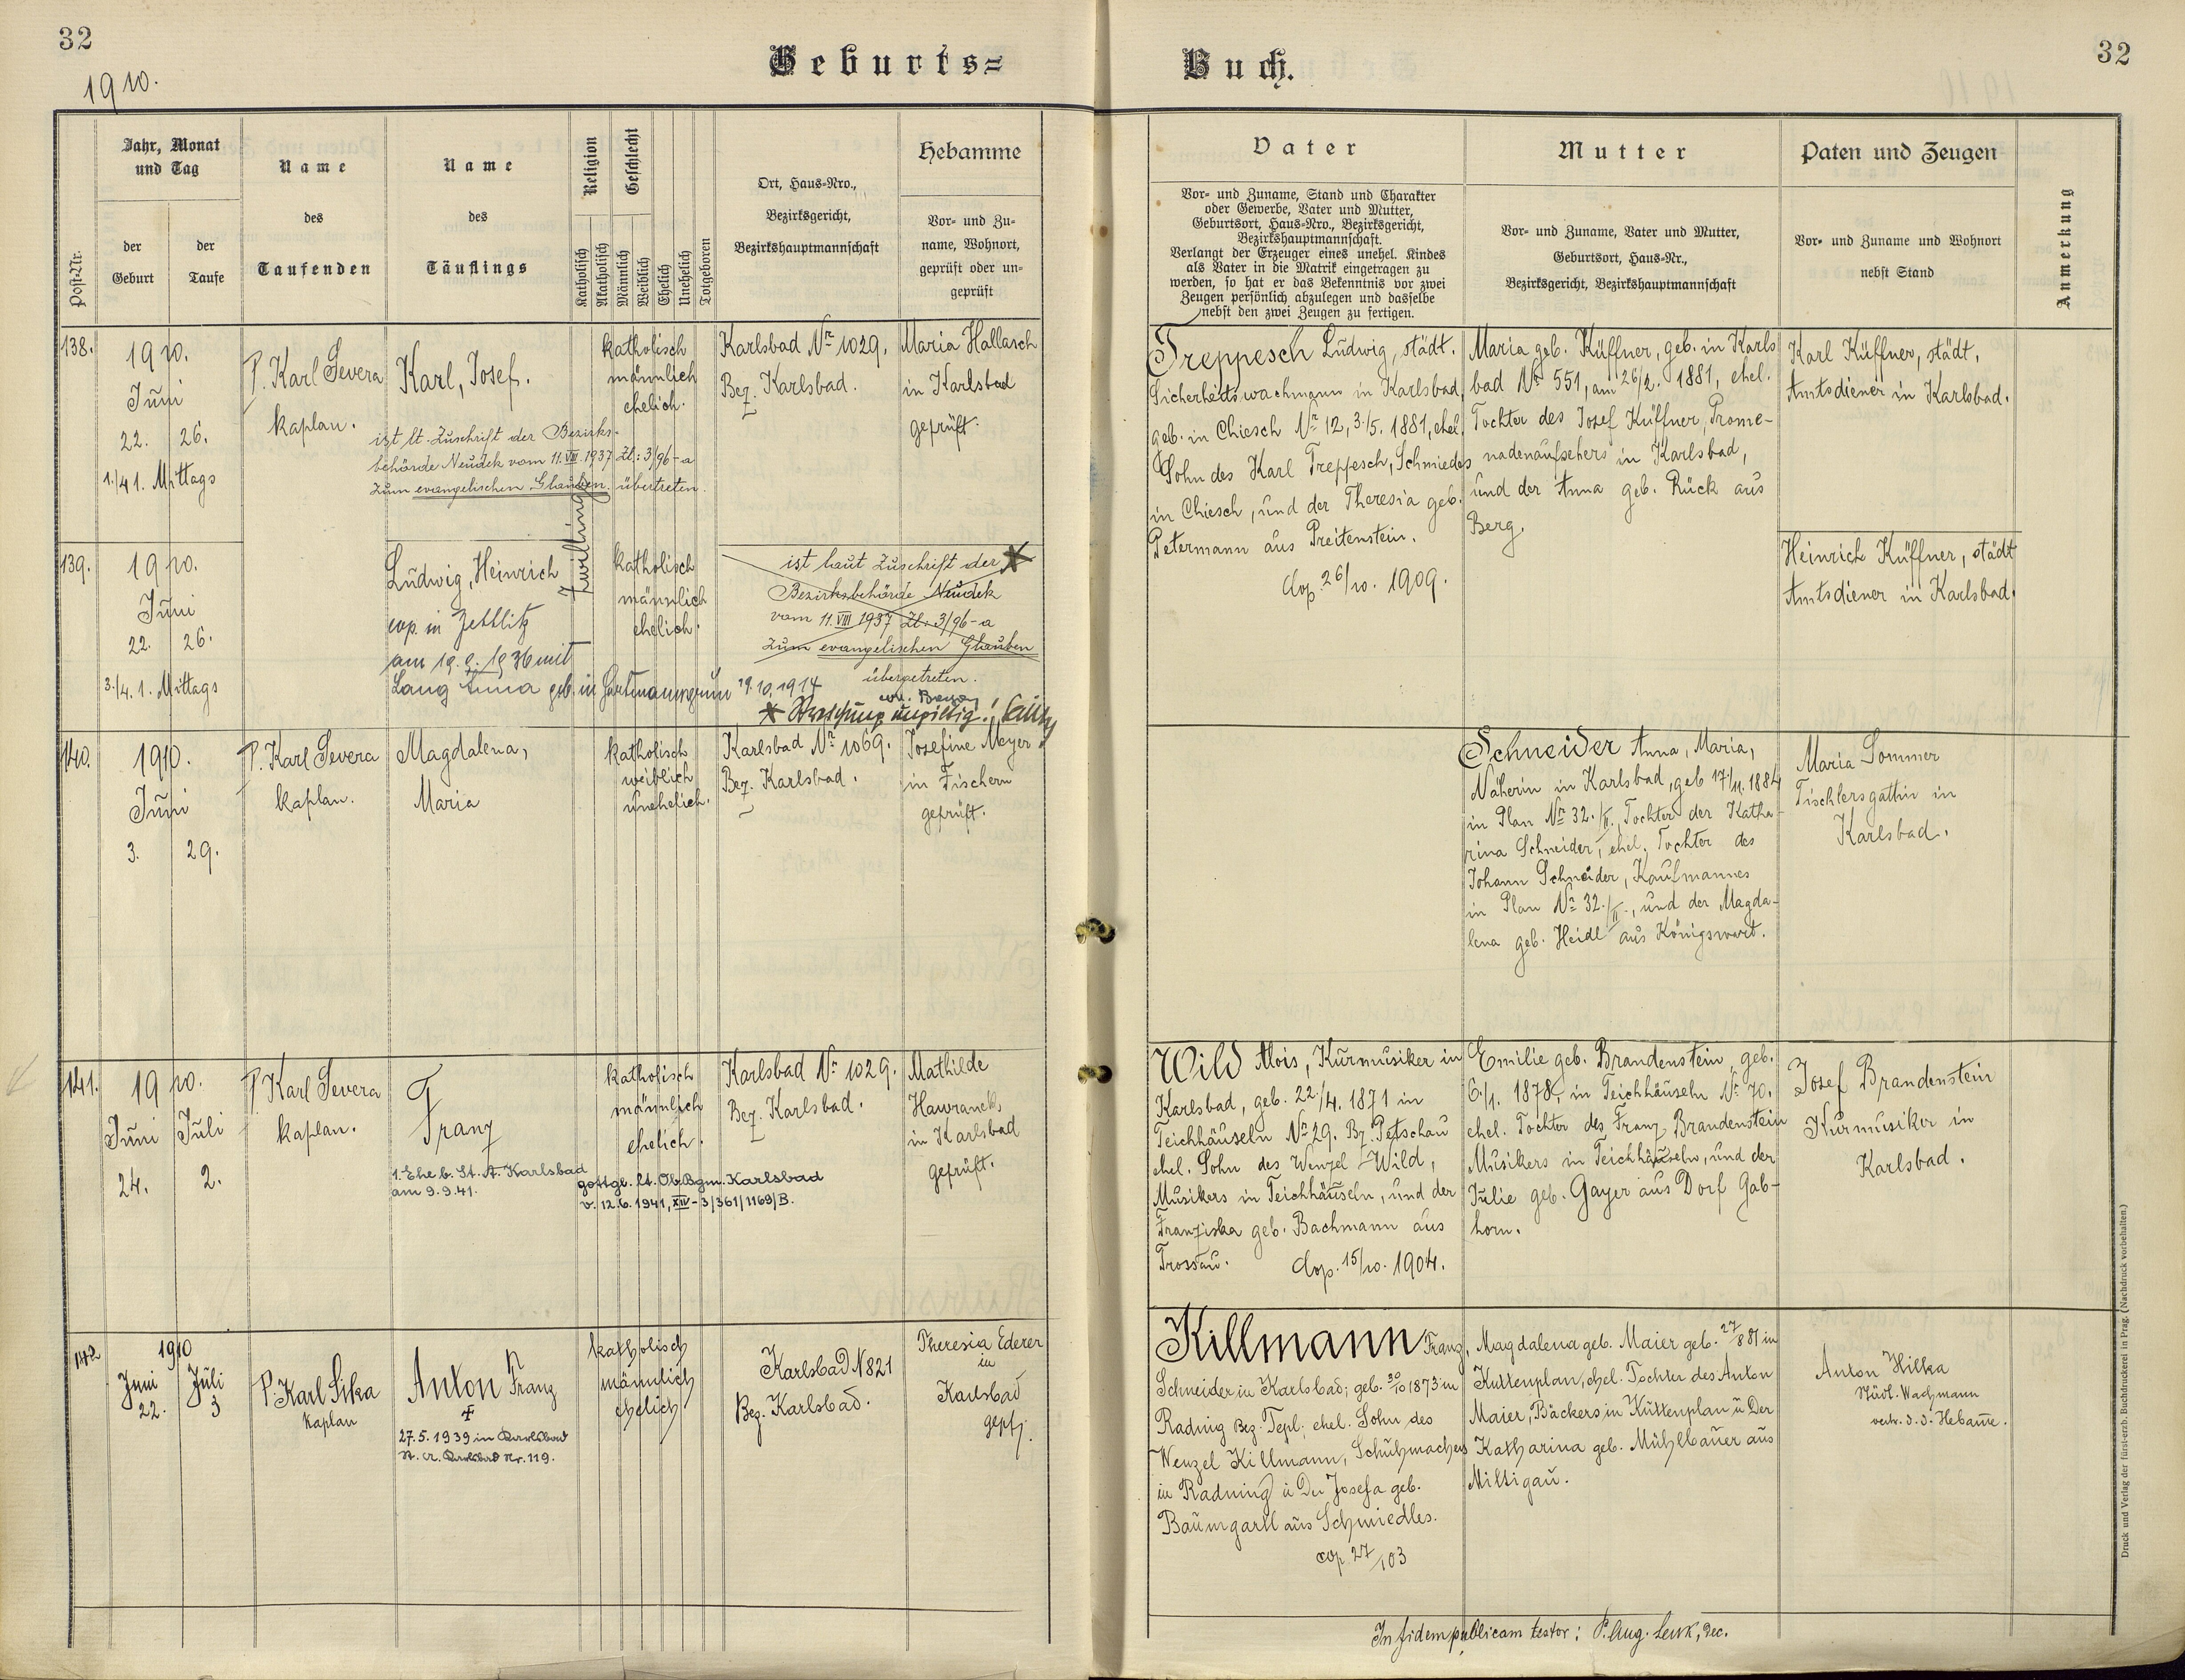 32
1910.
Geburts=
Post-Nr.
Jahr, Monat
und Tag
der
Geburt
der
Taufe
Name
des
Taufenden
Name
des
Täuflings
Religion
Katholisch
Akatholisch
Geschlecht
Männlich
Weiblich
Ehelich
Unehelich
Totgeboren
Ort, Haus=Nro.,
Bezirksgericht,
Bezirkshauptmannschaft
Hebamme
Vor= und Zu=
name, Wohnort,
geprüft oder un=
geprüft
138.
1910.
Juni
22. 26.
1./41. Mittags
P. Karl Severa
kaplan.
Karl, Josef.
ist lt. Zuschrift der Bezirks-
behörde Neudek vom 11.VIII.1937 Zl.: 3/96-a
zum evangelischen Glauben übertreten.
Zwillinge
katholisch
männlich
ehelich.
Karlsbad Nr. 1029.
Bez. Karlsbad.
Maria Hallasch
in Karlsbad
geprüft.
139.
1910.
Juni
22. 26.
3./4. 1. Mittags
Ludwig, Heinrich
cop. in Zettlitz
am 19. 9. 1936 mit
Lang Anna geb. in Hartmannsgrün 19.10.1914
katholisch
männlich
ehelich.
ist laut Zuschrift der
Bezirksbehörde Neudek
vom 11.VIII 1937 Zl.: 3/96-a
zum evangelischen Glauben
übergetreten.
140.
1910.
Juni
3. 29.
P. Karl Severa
kaplan.
Magdalena,
Maria
katholisch
weiblich
unehelich.
Karlsbad Nr. 1069.
Bez. Karlsbad.
Josefine Meyer
in Fischern
geprüft.
141.
1910.
Juni Juli
24. 2.
P. Karl Severa
kaplan.
Franz
1. Ehe b. St. A. Karlsbad
am 9.9.41.
katholisch
männlich
ehelich.
gottgl. lt. Ob.Bgm. Karlsbad
v. 12.6.1941, XIII-3/361/1169/B.
Karlsbad Nr. 1029.
Bez. Karlsbad.
Mathilde
Hawranek,
in Karlsbad
geprüft.
142
1910
Juni Juli
22. 3
P. Karl Sika
Kaplan
Anton Franz
27.5.1939 in Karlsbad
St. A. Karlsbad Nr. 119.
katholisch
männlich
ehelich
Karlsbad N 821
Bez. Karlsbad.
Theresia Ederer
in
Karlsbad
gepft.
Buch.
32
Vater
Vor= und Zuname, Stand und Charakter
oder Gewerbe, Vater und Mutter,
Geburtsort, Haus=Nro., Bezirksgericht,
Bezirkshauptmannschaft.
Verlangt der Erzeuger eines unehel. Kindes
als Vater in die Matrik eingetragen zu
werden, so hat er das Bekenntnis vor zwei
Zeugen persönlich abzulegen und dasselbe
nebst den zwei Zeugen zu fertigen.
Mutter
Vor= und Zuname, Vater und Mutter,
Geburtsort, Haus=Nr.,
Bezirksgericht, Bezirkshauptmannschaft
Paten und Zeugen
Vor= und Zuname und Wohnort
nebst Stand
Anmerkung
Treppesch Ludwig, städt.
Sicherheitswachmann in Karlsbad,
geb. in Chiesch Nr. 12, 3./5. 1881, ehel.
Sohn des Karl Treppesch, Schmiedes
in Chiesch, und der Theresia geb.
Petermann aus Preitenstein.
Cop. 26/10. 1909.
Maria geb. Küffner, geb. in Karls
bad Nr. 551, am 26/2. 1881, ehel.
Tochter des Josef Küffner, Prome-
nadenaufsehers in Karlsbad,
und der Anna geb. Rück aus
Berg.
Karl Küffner, städt.
Amtsdiener in Karlsbad.
Heinrich Küffner, städt
Amtsdiener in Karlsbad.
Schneider Anna, Maria,
Näherin in Karlsbad, geb 17/11. 1884
in Plan Nr. 32./II., Tochter der Katha-
rina Schneider, ehel. Tochter des
Johann Schneider, Kaufmannes
in Plan Nr. 32./II., und der Magda-
lena geb. Heidl aus Königswart.
Maria Sommer
Tischlersgattin in
Karlsbad.
Wild Alois, Kurmusiker in
Karlsbad, geb. 22./4. 1871 in
Teichhäuseln Nr. 29. Bz. Petschau
ehel. Sohn des Wenzel Wild,
Musikers in Teichhäuseln, und der
Franziska geb. Bachmann aus
Trossau. Cop. 15/10. 1904.
Emilie geb. Brandenstein, geb.
6./1. 1878, in Teichhäuseln Nr. 70.
ehel. Tochter des Franz Brandenstein
Musikers in Teichhäuseln, und der
Julie geb. Gayer aus Dorf Gab-
horn.
Josef Brandenstein
Kurmusiker in
Karlsbad.
Killmann Franz,
Schneider in Karlsbad; geb. 30/10 1873 in
Radnig Bez. Tepl; ehel. Sohn des
Wenzel Killmann, Schuhmachers
in Radning u Der Josefa geb.
Baumgartl aus Schmiedles.
cop. 27/1 03
Magdalena geb. Maier geb. 27/8 81 in
Kuttenplan, ehel. Tochter des Anton
Maier, Bäckers in Kuttenplan u Der
Katharina geb. Mühlbauer aus
Miltigau.
Anton Hilka
Städt. Wachmann
vertr. d. d. Hebamme.
In fidem publicam testor: P. Aug. Lenk, Dec.
Druck und Verlag der fürst-erzb. Buchdruckerei in Prag. (Nachdruck vorbehalten.)